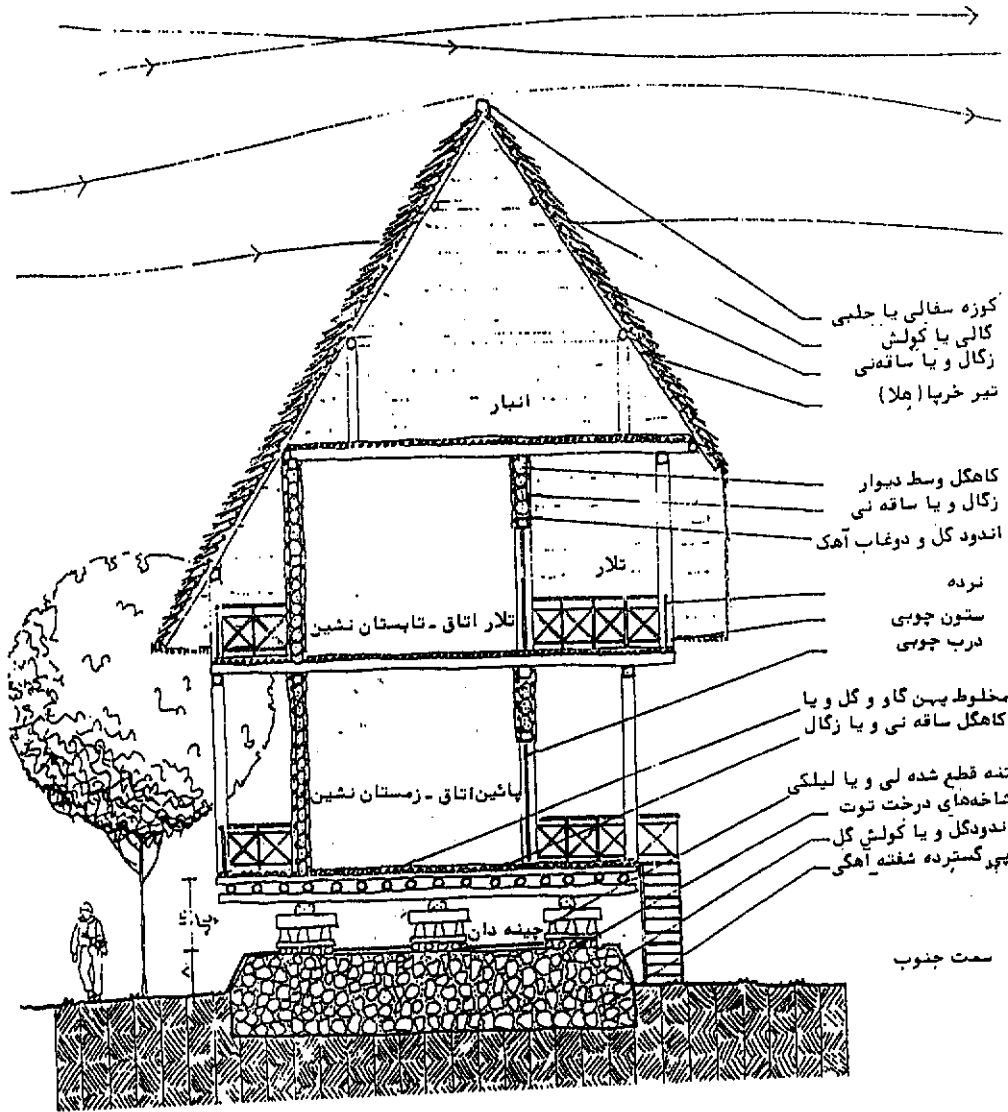 کوزه سفالی یا حلبی
گالی یا کولش
زگال و یا ساقه‌نی
تیر خرپا (هلا)
انبار
کاهگل وسط دیوار
زگال و یا ساقه نی
اندود گل و دوغاب آهک
تلار
نرده
ستون چوبی
درب چوبی
تلار اتاق - تابستان نشین
مخلوط پهن گاو و گل و یا
کاهگل ساقه نی و یا زگال
پائین اتاق - زمستان نشین
تنه قطع شده لی و یا لیلکی
شاخه‌های درخت توت
اندودگل و یا کولش گل
پی گسترده شفته آهگی
چینه دان
سمت جنوب